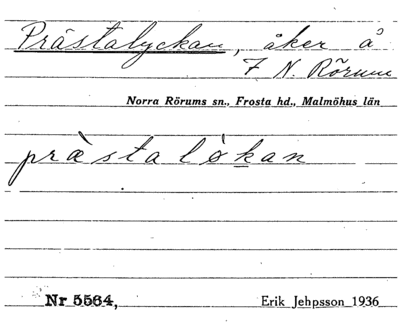 Prästalyckan, åker å
7 N. Rörum
Norra Rörums sn., Frosta hd., Malmöhus län
prästalökan
Nr 5564,
Erik Jehpsson 1936